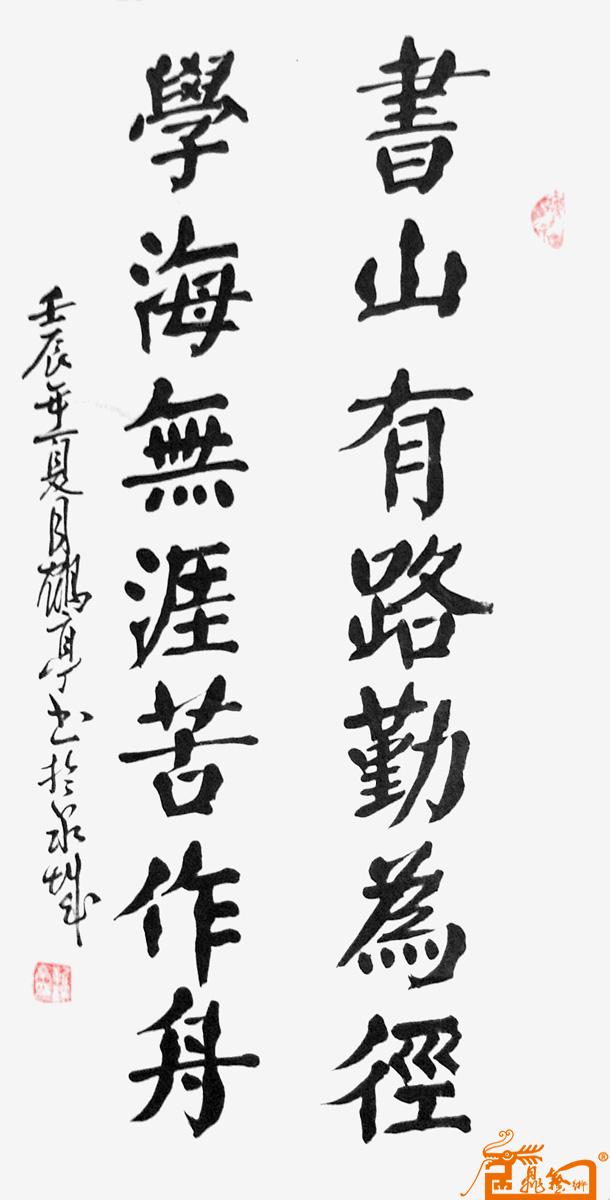 書山有路勤為徑
學海無涯苦作舟
壬辰年夏月鶴亭书於泉城